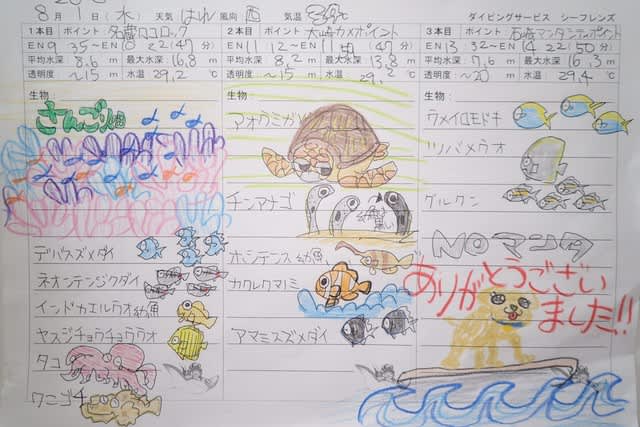 8月1日(水) 天気 はれ 風向 西 気温
ダイビングサービス シーフレンズ
1本目 ポイント 名蔵
EN 9:35～10:22(47分)
平均水深 8.6m 最大水深 16.8m
透明度 ～15m 水温 29.2℃
生物:
さんご畑
デバスズメダイ
ネオンテンジクダイ
インドカエルウオ幼魚
ヤスジチョウチョウウオ
タコ
ワニゴチ
2本目 ポイント 大崎カメポイント
EN 11:12～11:59(47分)
平均水深 8.2m 最大水深 13.8m
透明度 ～15m 水温 29.2℃
生物:
アオウミガメ
チンアナゴ
ホシテンス幼魚
カクレクマノミ
アマミスズメダイ
3本目 ポイント 石崎マンタシティポイント
EN 13:32～14:22(50分)
平均水深 7.6m 最大水深 16.3m
透明度 ～20m 水温 29.4℃
生物:
ウメイロモドキ
ツバメウオ
グルクン
NOマンタ
ありがとうござい
ました!!